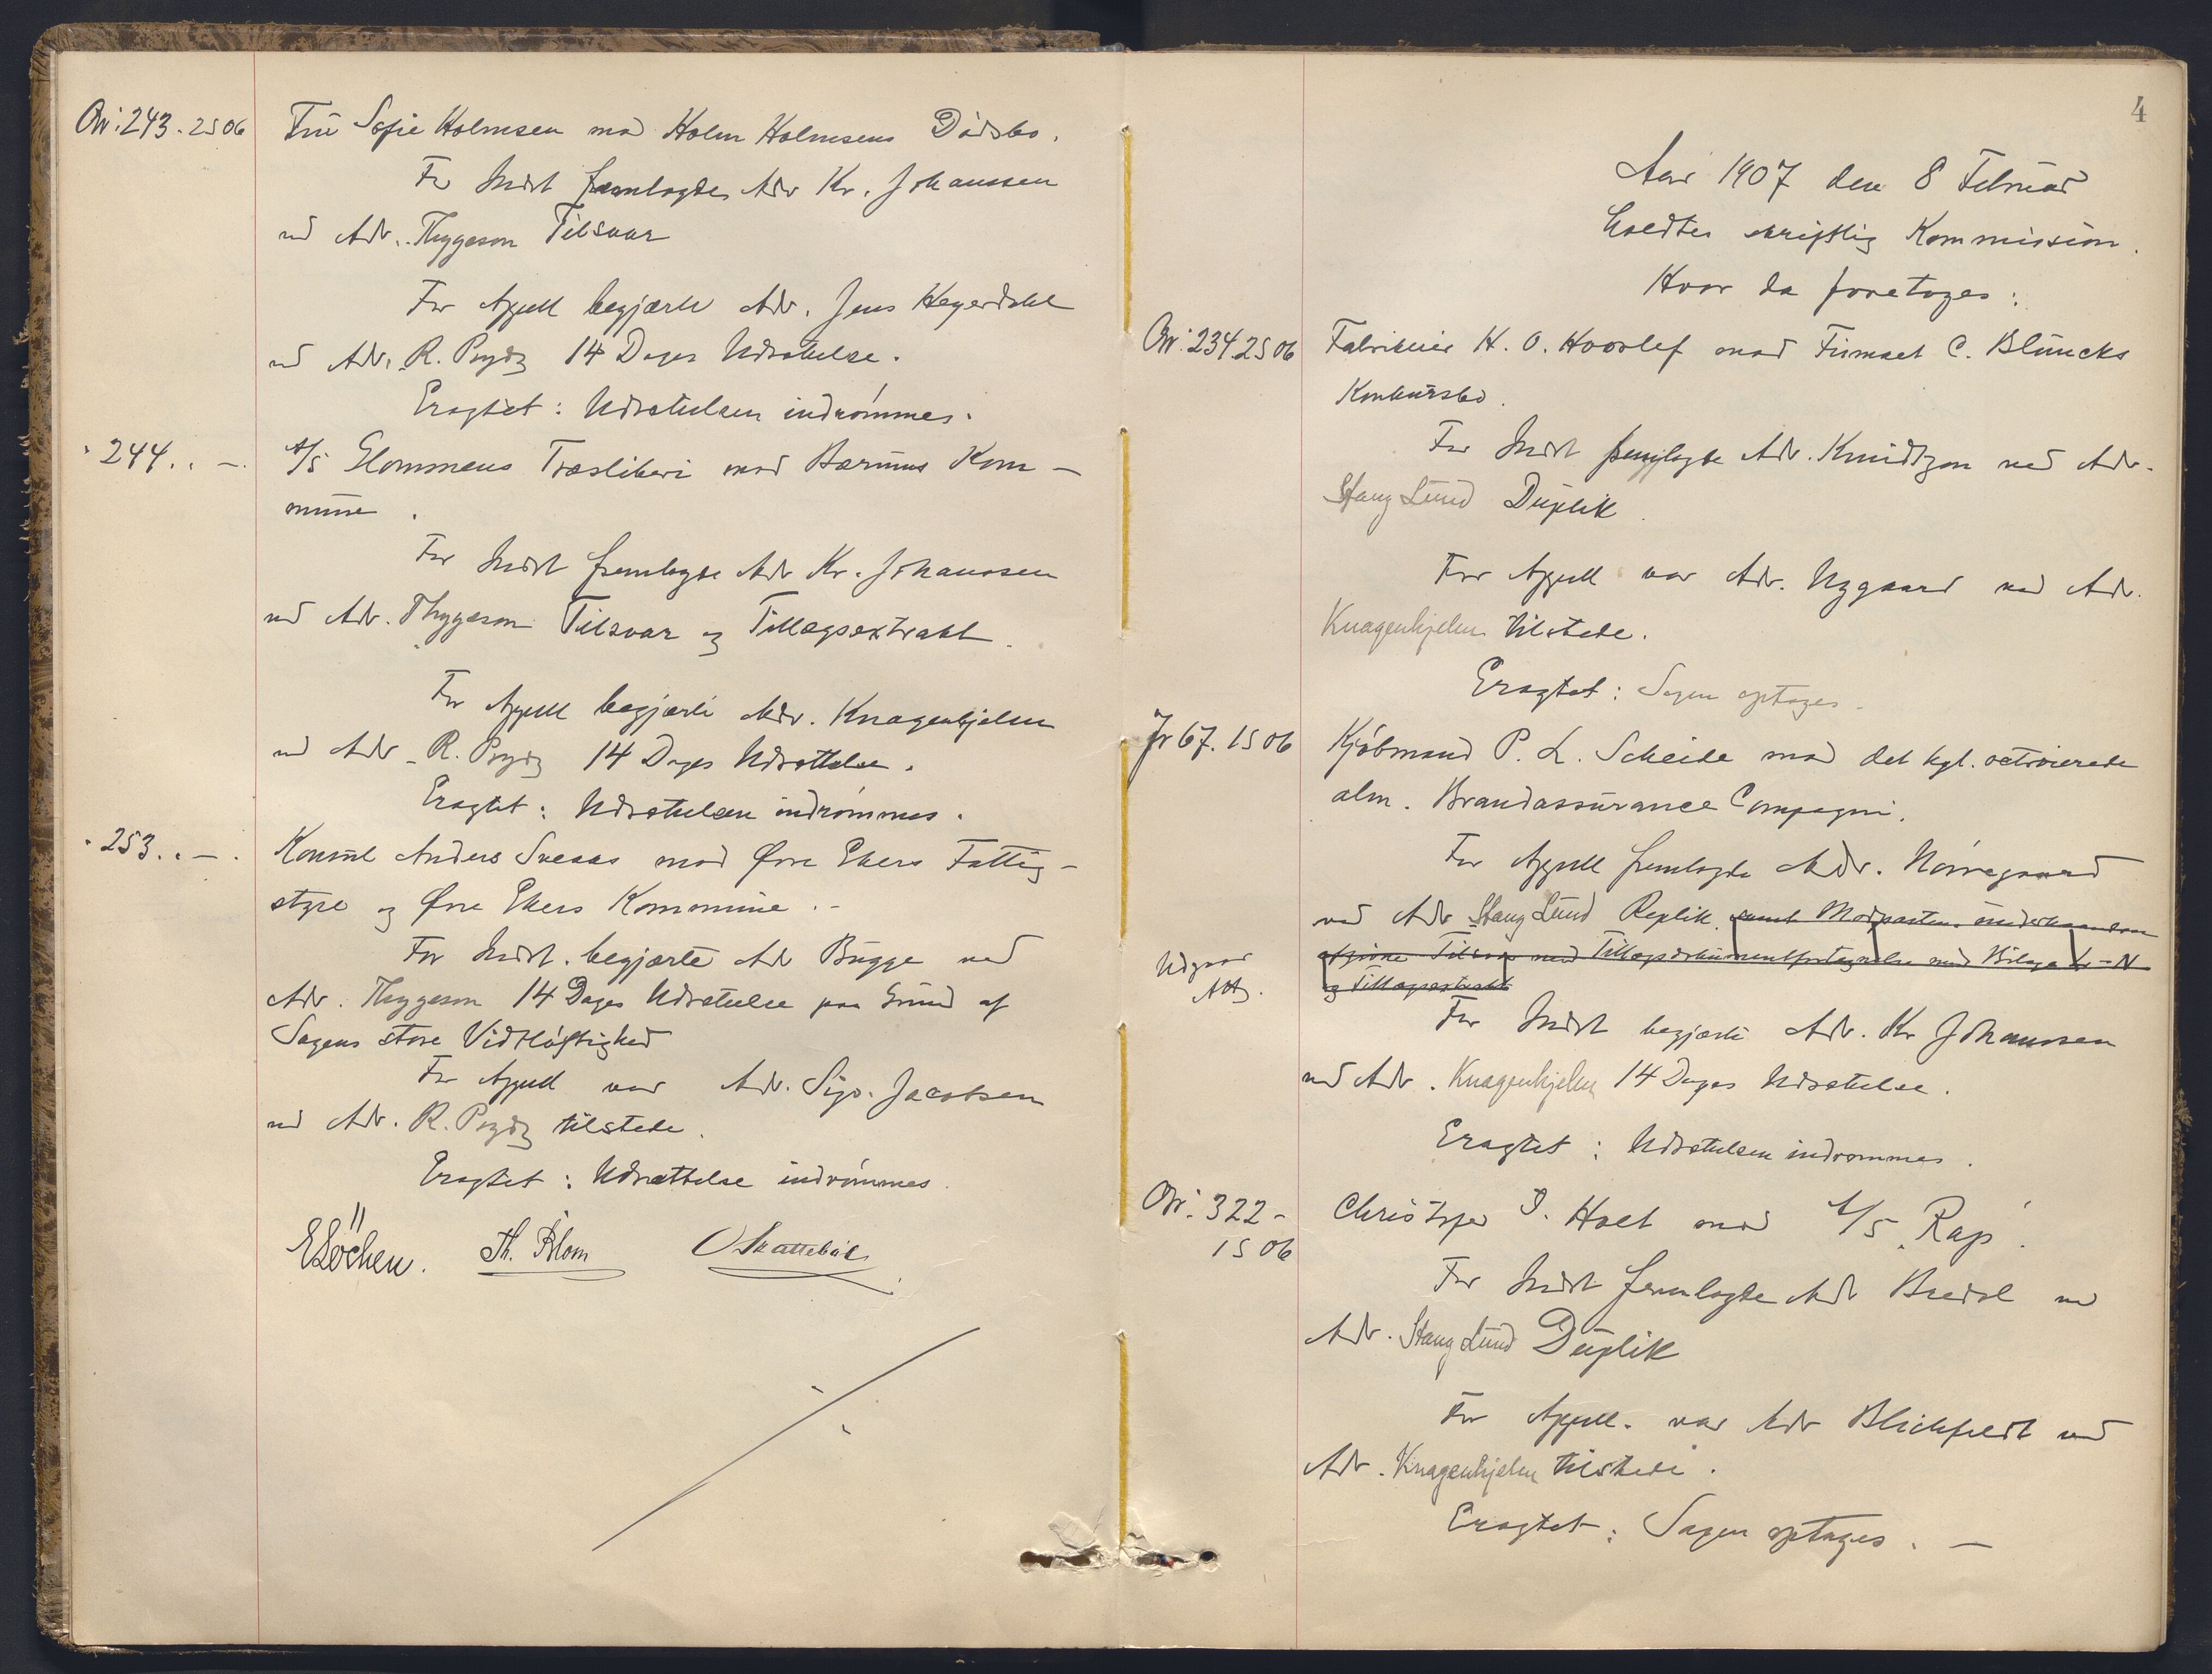 243. 2 S 06 Frü Sofie Holmsen mod Holm Holmsens Dödsbo.
For Indst fremlagde Adv Kr. Johanssen
ved Adv. Thygeson Tilsvar
For Appell begjærte Adv. Jens Heyerdahl
ved Adv. R. Prydz 14 Dages Udsættelse.
Eragtet: Udsættelsen indrømmes.
" 244. . — A/S Glommens Træsliberi mod Bærums Kom-
mune.
For Indst fremlagde Adv Kr. Johanssen
ved Adv. Thygeson Tilsvar og Tillægsextrakt.
For Appell begjærte Adv. Knagenhjelm
ved Adv R. Prydz 14 Dages Udsættelse.
Eragtet: Udsættelsen indrømmes.
" 253. . — . Konsul Anders Sveaas mod Øvre Ekers Fattig-
styre og Øvre Ekers Kommune. -
For Indst. begjærte Adv Bugge ved
Adv. Thygeson 14 Dages Udsættelse paa Grund af
Sagens store Vidtløftighed
For Appell var Adv. Sigv. Jacobsen
ved Adv. R. Prydz tilstede.
Eragtet: Udsættelse indrømmes.
E Löchen. Th. Blom O Skattebøl
4
Aar 1907 den 8 Februar
holdtes skriftlig Kommission.
Hvor da foretoges:
234 2 S 06 Fabrikeier H. O. Hoorlef mod Firmaet C. Bluncks
Konkursbo.
For Indst fremlagde Adv. Knudtzon ved Adv.
Stang Lund Duplik.
For Appell var Adv. Nygaard ved Adv.
Knagenhjelm tilstede.
Eragtet: Sagen optages.
67. 1 S 06 Kjøbmand P. L. Scheide mod det kgl. octroierede
alm. Brandassurance Compagni.
For Appell fremlagde Adv. Nørregaard
ved Adv Stang Lund Replik. samt Modpartens underhaanden
afgivne Tilsvar med Tillægsdokumentfortegnelse med Bilage L-N
og Tillægsextrakt
Udgaar
For Indst begjærte Adv. Kr Johanssen
ved Adv. Knagenhjelm 14 Dages Udsættelse.
Eragtet: Udsættelsen indrømmes.
322 - Christopher I. Holt mod A/S „Rap".
1 S 06
For Indst fremlagde Adv Bredal ved
Adv. Stang Lund Duplik
For Appell. var Adv Blichfeldt ved
Adv. Knagenhjelm tilstede.
Eragtet: Sagen optages. —